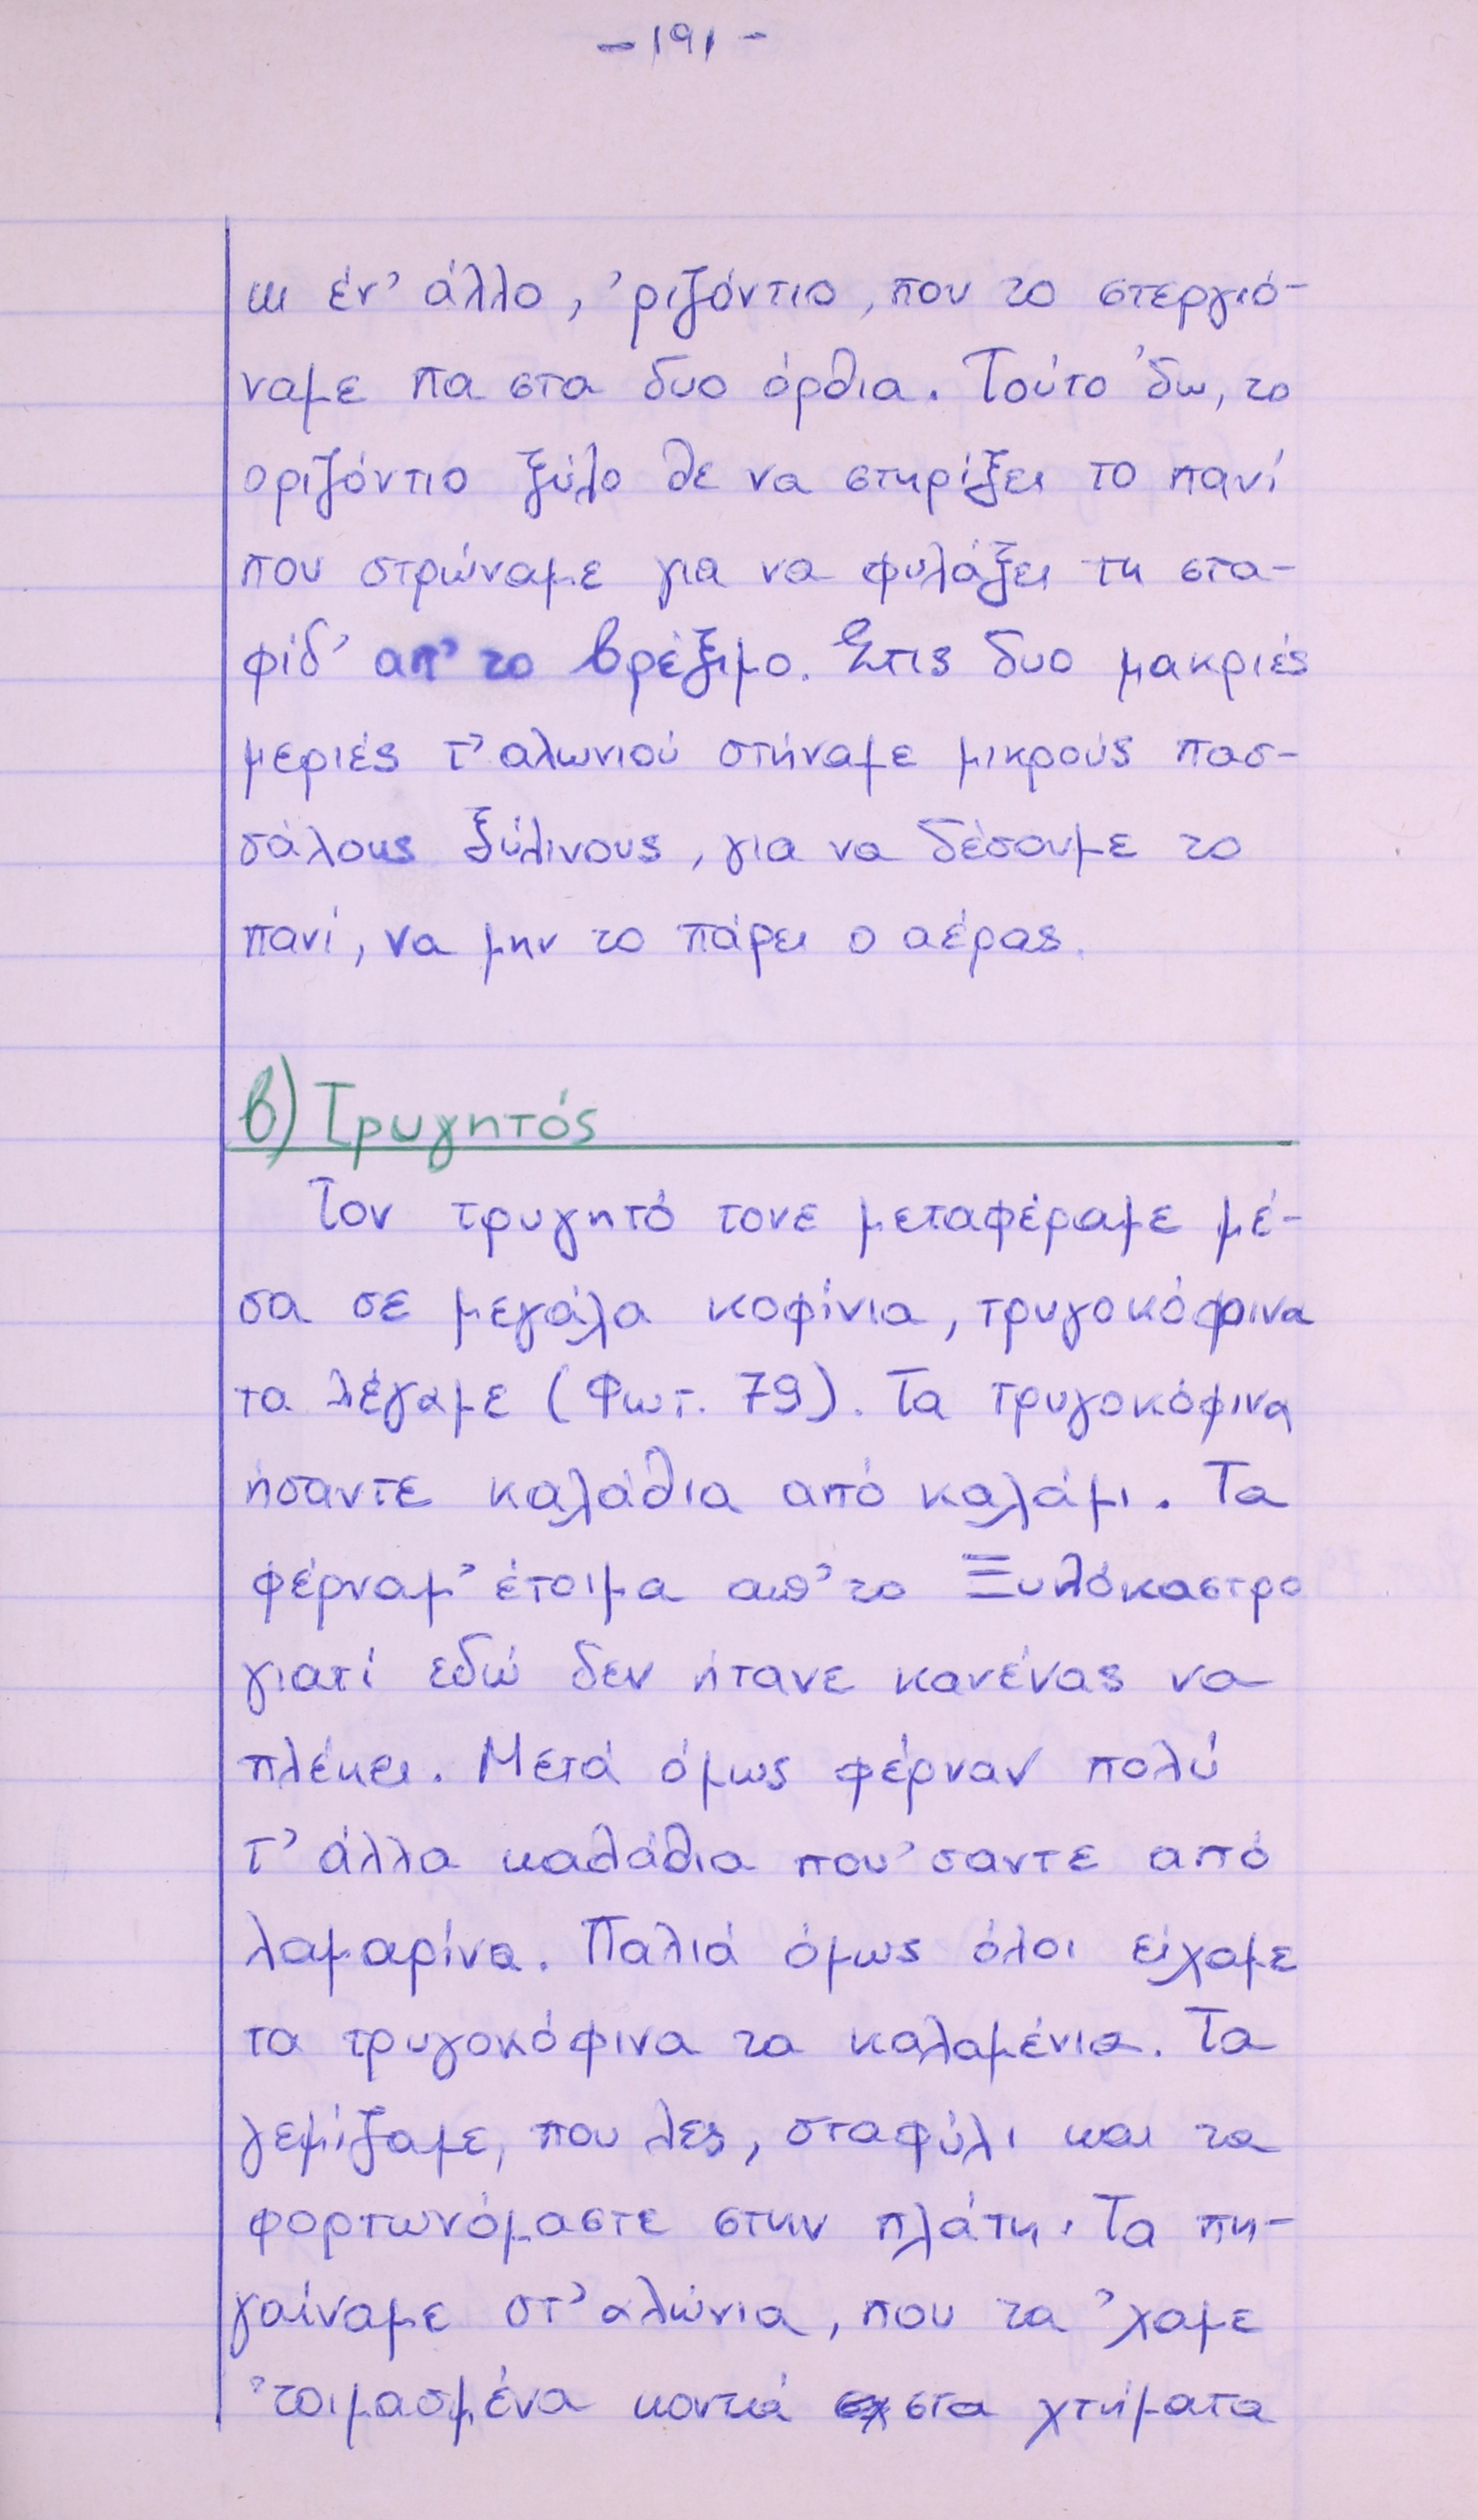 - 191 -
κι έν' άλλο, 'ριζόντιο, που το στεργιό-
ναμε πα στα δυο όρθια. Τούτο 'δω, το
οριζόντιο ξύλο θε να στηρίξει το πανί
που στρώναμε για να φυλάξει τη στα-
φίδ' απ' το βρέξιμο. Στις δυο μακριές
μεριές τ' αλωνιού στήναμε μικρούς πασ-
σάλους ξύλινους, για να δέσουμε το
πανί, να μην το πάρει ο αέρας.
β) Τρυγητός
Τον τρυγητό τονε μεταφέραμε μέ-
σα σε μεγάλα κοφίνια, τρυγοκόφινα
τα λέγαμε (Φωτ. 79). Τα τρυγοκόφινα
ήσαντε καλάθια από καλάμι. Τα
φέρναμ' έτοιμα απ' το Ξυλόκαστρο
γιατί εδώ δεν ήτανε κανένας να
πλέκει. Μετά όμως φέρναν πολύ
τ' άλλα καλάθια που 'σαντε από
λαμαρίνα. Παλιά όμως όλοι είχαμε
τα τρυγοκόφινα τα καλαμένια. Τα
γεμίζαμε, που λες, σταφύλι και τα
φορτωνόμαστε στην πλάτη. Τα πη-
γαίναμε στ' αλώνια, που τα 'χαμε
'τοιμασμένα κοντά στα χτήματα